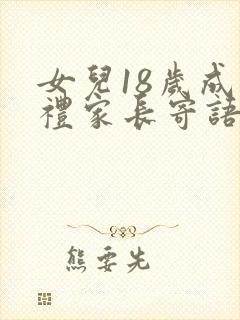 女兒18歲成
禮家長寄語
熊要先